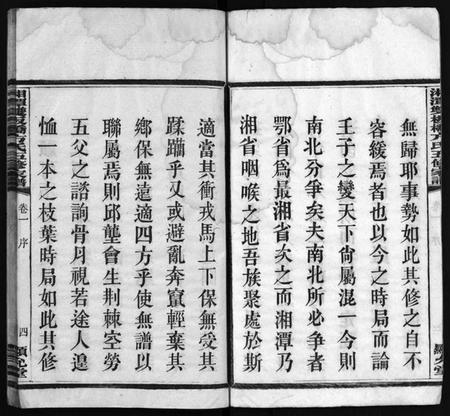 無歸耶事勢如此其修之自不
容緩焉者也以今之時局而論
壬子之變天下尙屬混一今則
南北分爭矣夫南北所必爭者
鄂省爲最湘省次之而湘潭乃
湘省咽喉之地吾族聚處於斯
適當其衝戎馬上下保無受其
蹂躪乎又或避亂奔竄輕棄其
鄉保無遠適四方乎使無譜以
聯屬焉則邱壟會生荆棘空勞
五父之諮詢骨月視若途人遑
恤一本之枝葉時局如此其修
卷一 序
四